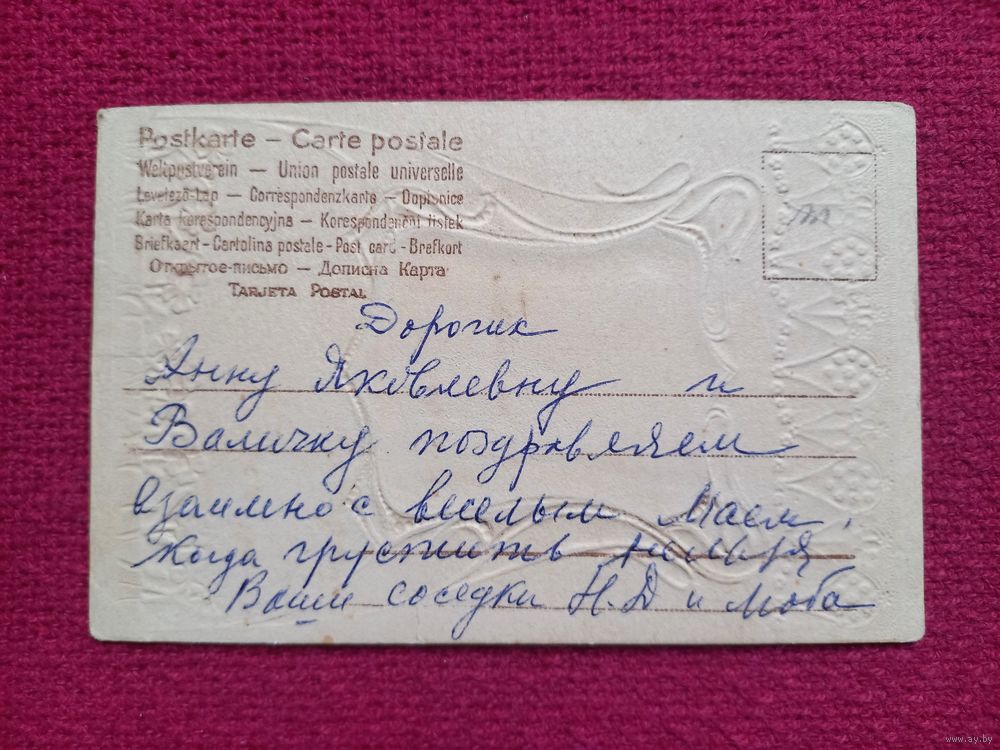 Postkarte – Carte postale
Weltpostverein – Union postale universelle
Levelező-Lap – Correspondenzkarte – Dopisnice
Karta korespondencyjna – Korespondenční lístek
Briefkaart – Cartolina postale – Post card – Brefkort
Открытое-письмо – Дописна Карта
Tarjeta Postal
Дорогих
Анну Яковлевну и
Валичку поздравляем
взаимно с веселым Маем,
когда грустить нельзя
Ваши соседки Н.Д и
www.ay.by